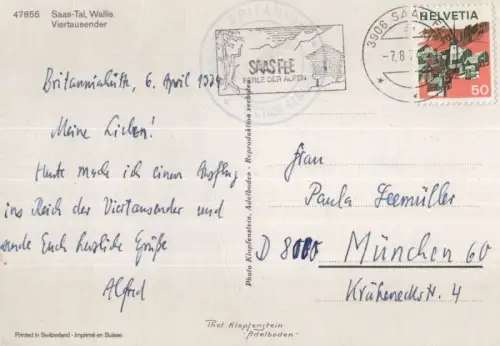 47855 Saas-Tal, Wallis
Viertausender
Britanniahütte, 6. April 1974
Meine Lieben!
Heute mach ich einen Ausflug
ins Reich der Viertausender und
sende Euch herzliche Grüße
Alfred
Printed in Switzerland - Imprimé en Suisse
SAAS FEE
PERLE DER ALPEN
3906 SAAS-FEE
HELVETIA
50
Photo Klopfenstein, Adelboden - Reproduktion verboten
Frau
Paula Seemüller
D 8000 München 60
Kräheneckstr. 4
Phot Klopfenstein
Adelboden